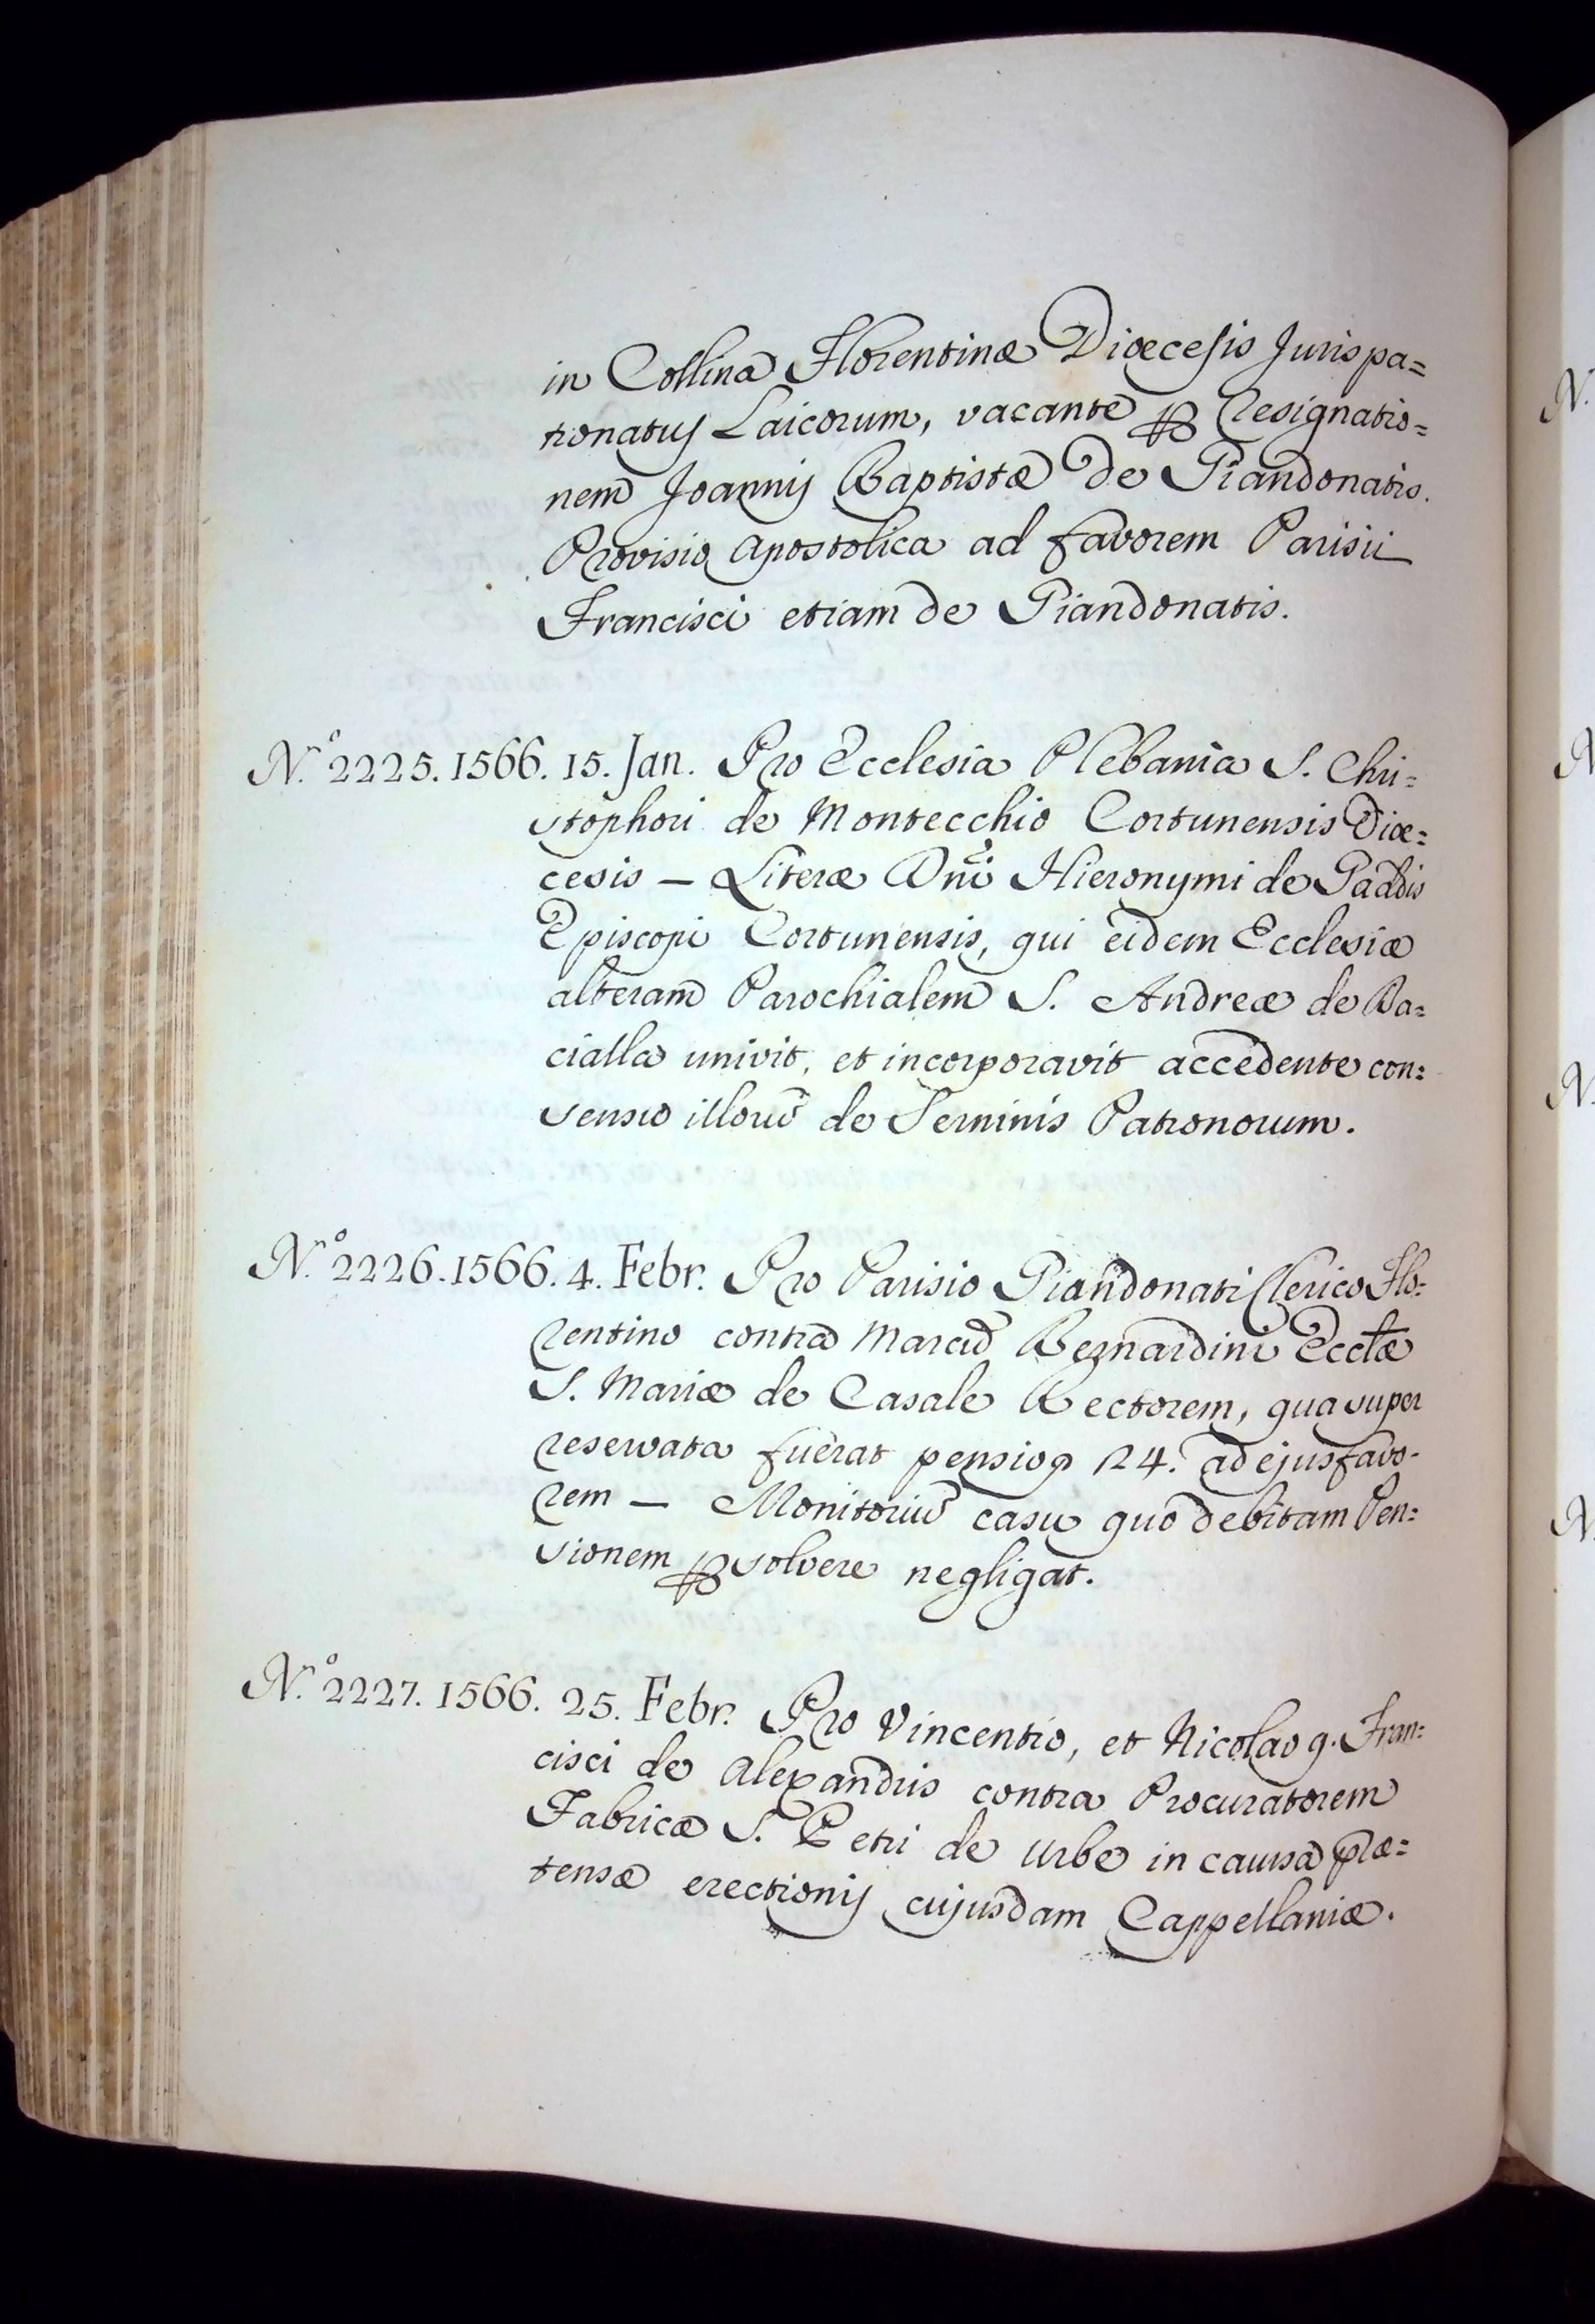 in Collina Florentinæ Diœcesis Jurispa=
tronatus Laicorum, vacante per Resignatio=
nem Joannis Baptistæ de Piandonatis.
Provisio Apostolica ad favorem Parisii
Francisci etiam de Piandonatis.
N.º 2225. 1566. 15. Jan. Pro Ecclesia Plebania S. Chri=
stophori de Montecchio Cortunensis Diœ=
cesis — Literæ Dñi Hieronymi de Gaddis
Episcopi Cortunensis, qui eidem Ecclesiæ
alteram Parochialem S. Andreæ de Ba=
cialla univit, et incorporavit accedente con=
sensu illorũ de Serninis Patronorum.
N.º 2226. 1566. 4. Febr. Pro Parisio Piandonati Clerico Flo=
rentino contra Marcũ Bernardini Eccłæ
S. Mariæ de Casale Rectorem, qua super
reservata fuerat pensio 24. ad ejus favo-
rem — Monitoriũ casu quo debitam Pen=
sionem persolvere negligat.
N.º 2227. 1566. 25. Febr. Pro Vincentio, et Nicolao q. Fran=
cisci de Alexandris contra Procuratorem
Fabricæ S. Petri de Urbe in causa præ=
tensæ erectionis cujusdam Cappellaniæ.